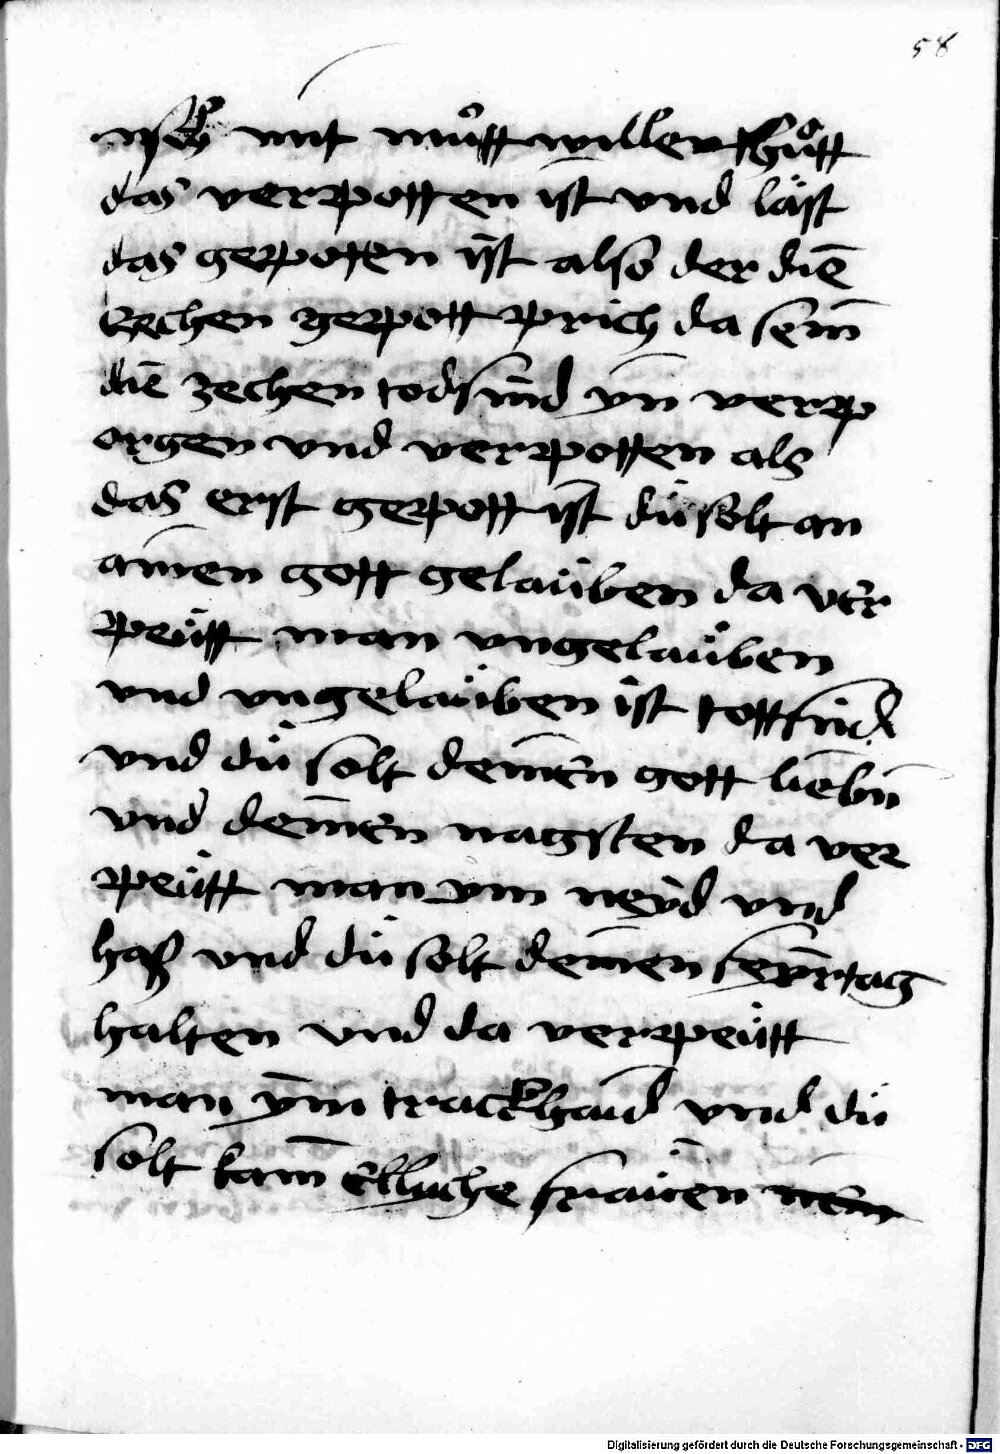 58
mit mu̇tt willen thůtt
das verpotten ist vnd läst
das gepoten ist also der die
zechen gepott prich da sein
die zechen todsünd yn verp
orgen vnd verpotten als
das erst gepott ist du̇ solt an
ainen gott gelau̇ben da ver
peu̇tt man vngelau̇ben
vnd vngelau̇ben ist tottsind
vnd du̇ solt deinen gott liebn
vnd deinen nagsten da ver
peu̇tt man ym neyd vnd
haß vnd du̇ solt deinen feyrtag
halten vnd da verpeu̇tt
man ym trackhaid vnd du̇
solt kain elliche frau̇en nem
Digitalisierung gefördert durch die Deutsche Forschungsgemeinschaft - DFG